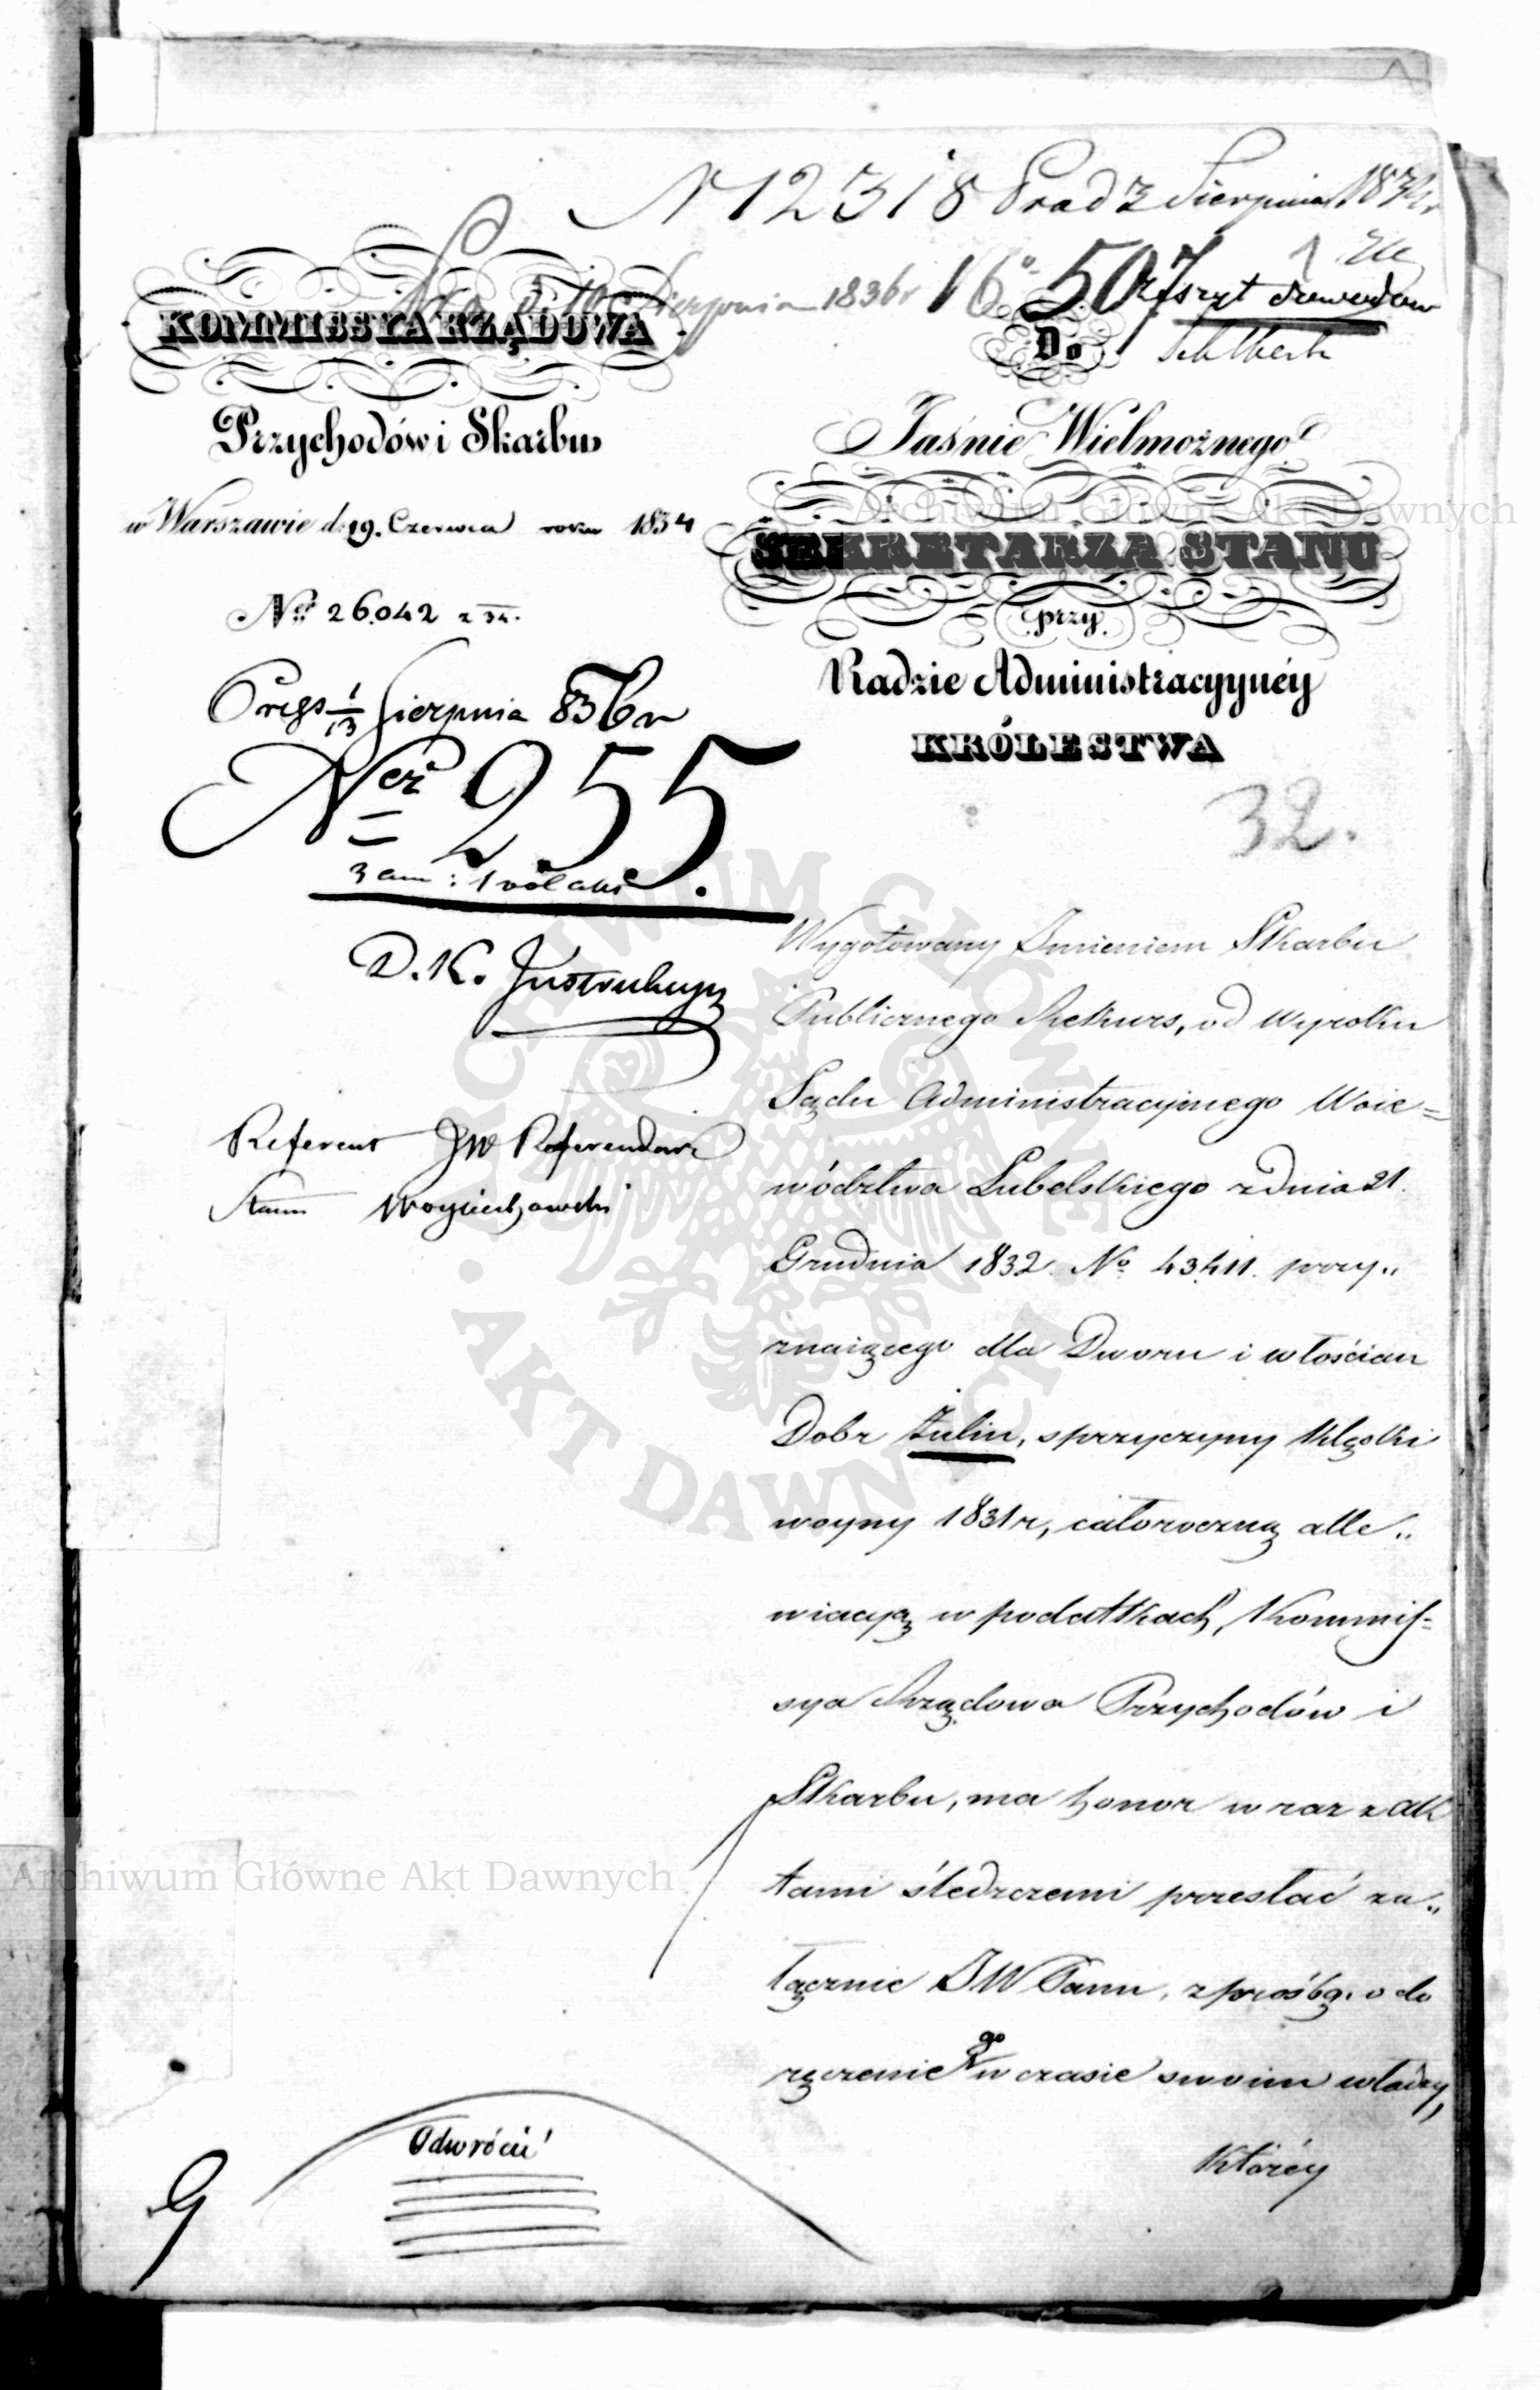 N 12318 Prad 3 Sierpnia 1834 r
Sierpnia 1836 r 16° 507
KOMMISSYA RZĄDOWA
Przychodów i Skarbu
w Warszawie d. 19. Czerwca roku 1834
No 26042
Sierpnia 836 r
Ner 255.
D. K.
Referent JW Referendarz
Stanu Woyciechowski
Do
Jaśnie Wielmożnego
SEKRETARZA STANU
przy
Radzie Administracyynéy
KRÓLESTWA
32.
Wygotowany Imieniem Skarbu
Publicznego Rekurs, od wyroku
Sądu Administracyjnego Woie=
wództwa Lubelskiego z dnia 21.
Grudnia 1832. No 43411. przy„
znaiącego dla Dworu i włościan
Dobr Żulin, z przyczyny klęski
woyny 1831 r, całoroczną alle„
wiacyą w podatkach, Kommis=
sya Rządowa Przychodów i
Skarbu, ma honor wraz z ak
tami śledczemi przesłać za„
łącznie JW Panu, z prośbą o do
ręczenie go w czasie swoim władzy,
któréy
Odwrócić
9
Archiwum Główne Akt Dawnych
Archiwum Główne Akt Dawnych
ARCHIWUM GŁÓWNE AKT DAWNYCH